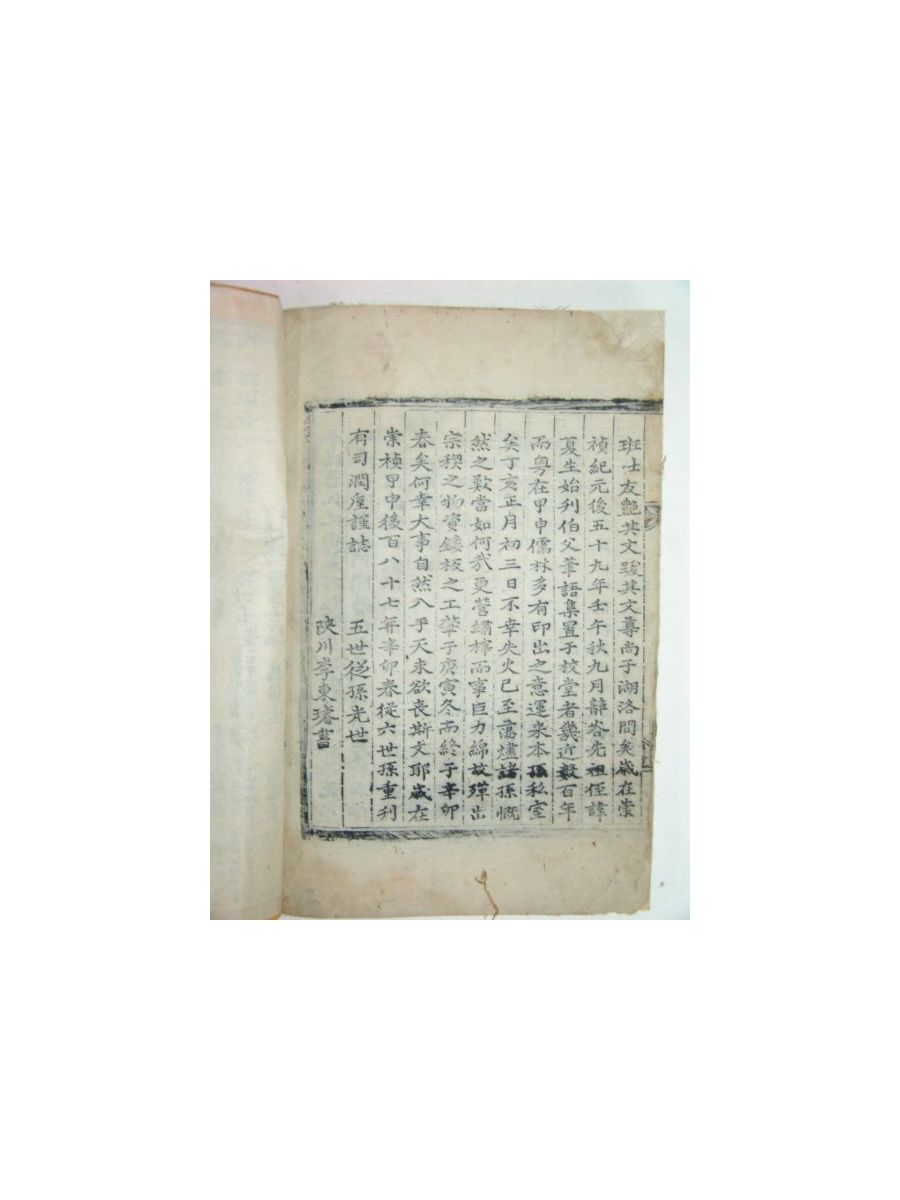 班士友艶其文跋其文尊尚乎湖洛間矣歲在崇
禎紀元後五十九年壬午秋九月薜谷先祖侄諱
夏生始刋伯父筆語集置于校堂者幾近數百年
而粤在甲申儒林多有印出之意運来本孫私室
矣丁亥正月初三日不幸失火已至蕩爐諸孫慨
然之歎當如何㢤更營繡梓而事巨力綿故殫出
宗稧之物資鏤板之工肇于庚寅冬而終于辛卯
春矣何幸大事自然八乎天未欲丧斯文耶歲在
崇禎甲申後百八十七年辛卯春從六世孫重刋
有司潤垕謹誌 五世從孫光世
陜川李東璿書